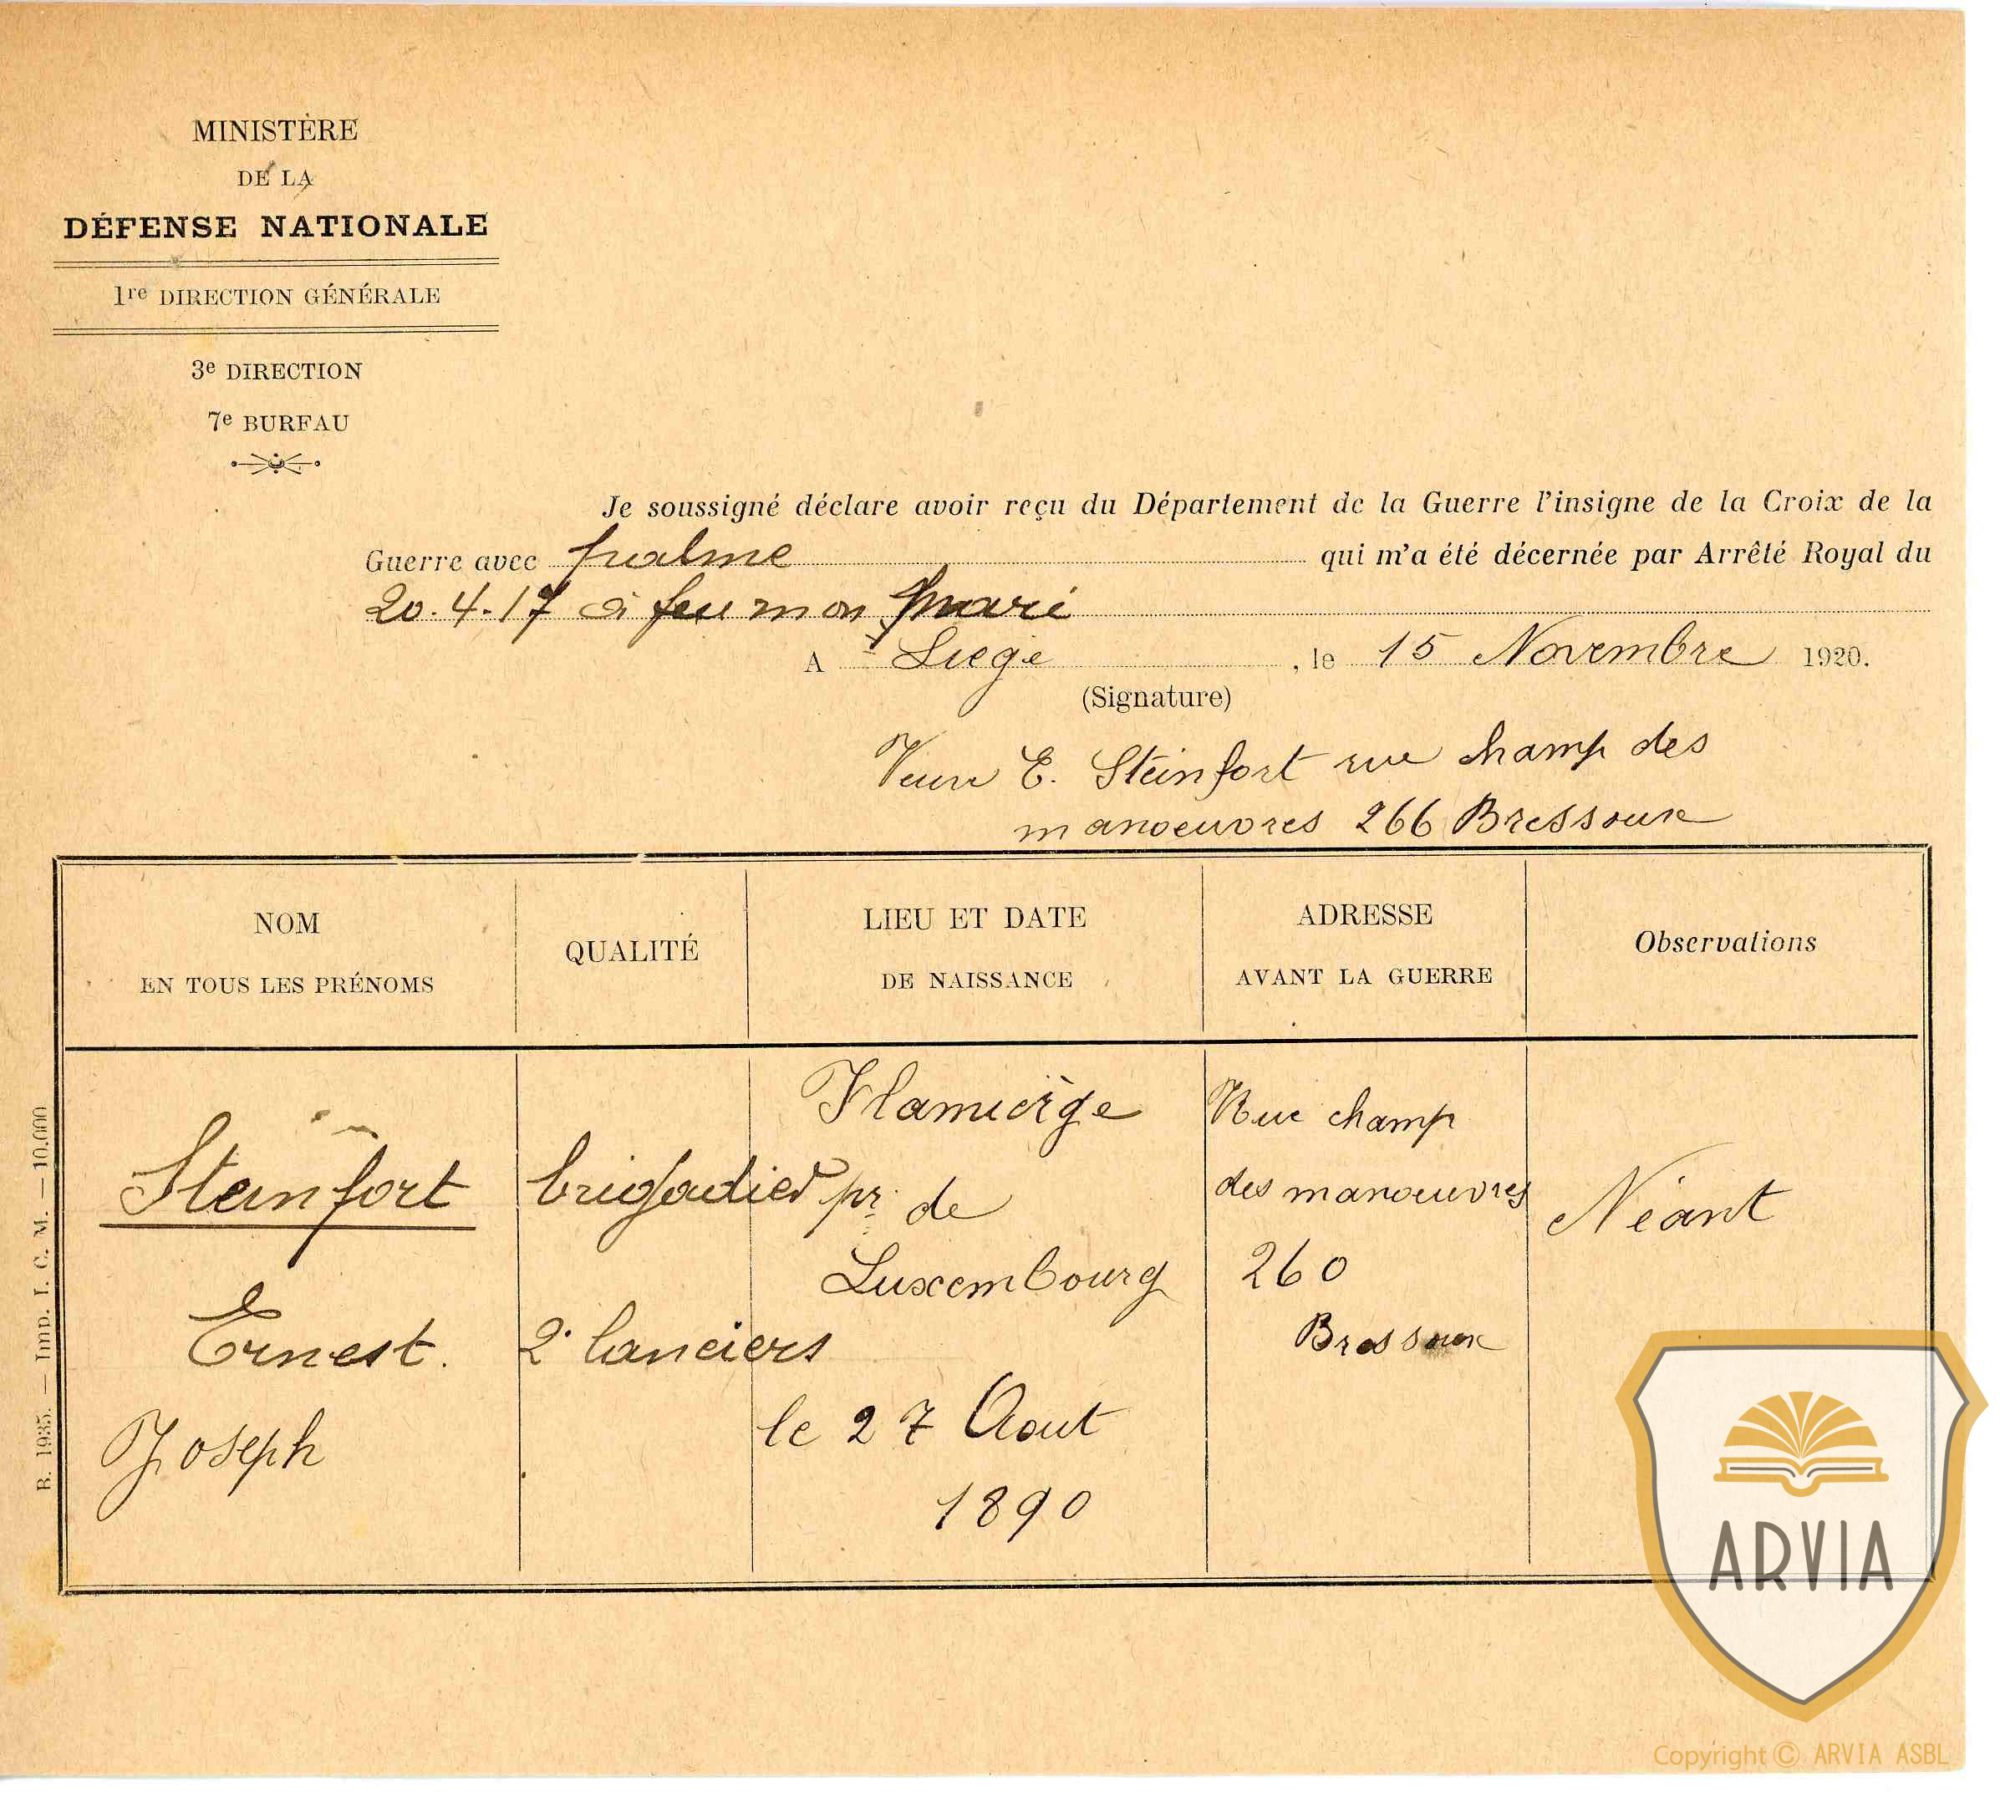 MINISTÈRE
DE LA
DÉFENSE NATIONALE
1re DIRECTION GÉNÉRALE
3e DIRECTION
7e BUREAU
Je soussigné déclare avoir reçu du Département de la Guerre l'insigne de la Croix de la
Guerre avec palme qui m'a été décernée par Arrêté Royal du
20.4.17 à feu mon mari
A Liege, le 15 Novembre 1920.
(Signature)
Veuve E. Steinfort rue champ des
manoeuvres 266 Bressoux
NOM
EN TOUS LES PRÉNOMS
QUALITÉ
LIEU ET DATE
DE NAISSANCE
ADRESSE
AVANT LA GUERRE
Observations
Steinfort
Ernest.
Joseph
brigadier
2e lanciers
Flamierge
pr. de
Luxembourg
le 27 Aout
1890
Rue champ
des manoeuvres
260
Bressoux
Néant
B. 1935. — Imp. I. C. M. — 10.000
ARVIA
Copyright © ARVIA ASBL